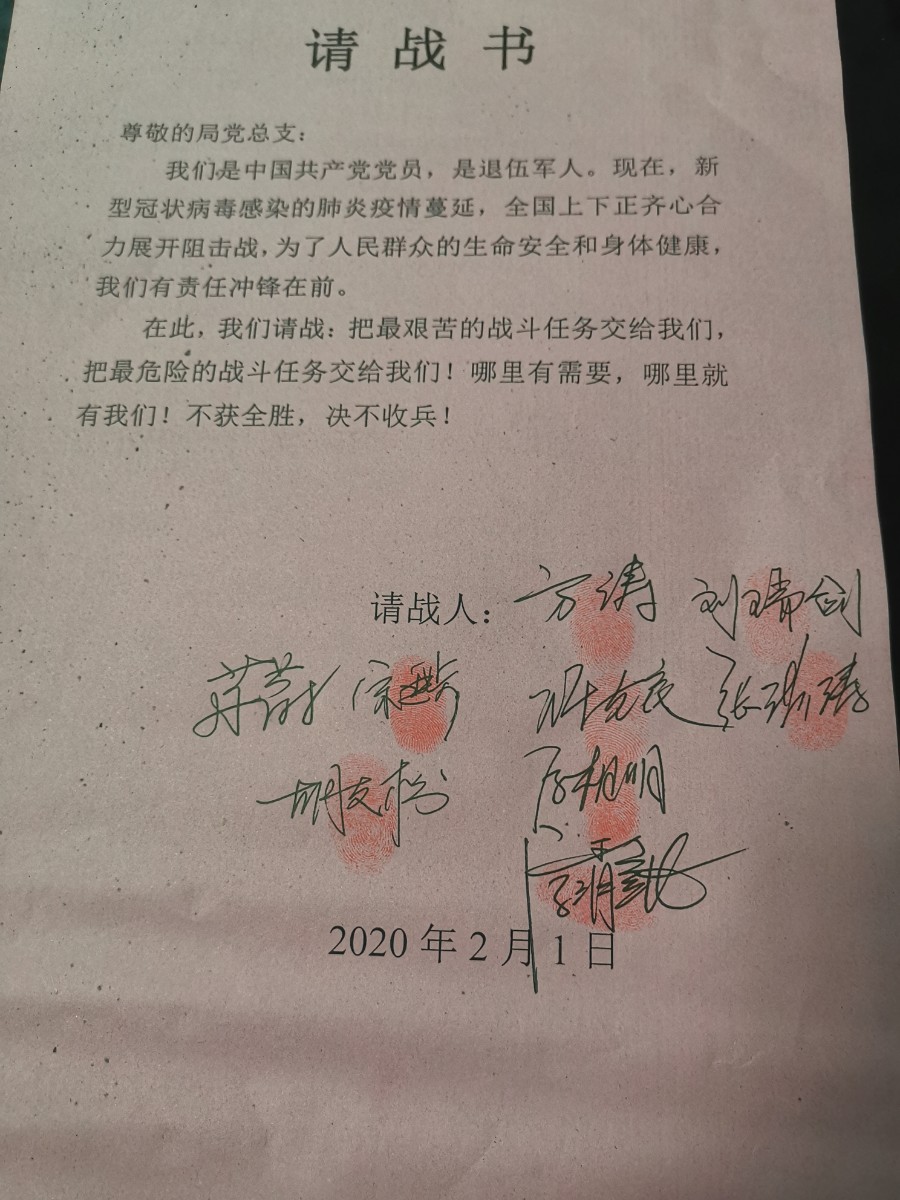 请战书
尊敬的局党总支：
我们是中国共产党党员，是退伍军人。现在，新
型冠状病毒感染的肺炎疫情蔓延，全国上下正齐心合
力展开阻击战，为了人民群众的生命安全和身体健康，
我们有责任冲锋在前。
在此，我们请战：把最艰苦的战斗任务交给我们，
把最危险的战斗任务交给我们！哪里有需要，哪里就
有我们！不获全胜，决不收兵！
请战人：方涛 刘瑞剑
胡友松
2020年2月1日